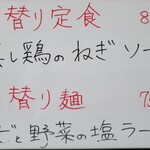 替り定食 8
し鶏のねぎソー
替り麺 7
と野菜の塩ラー